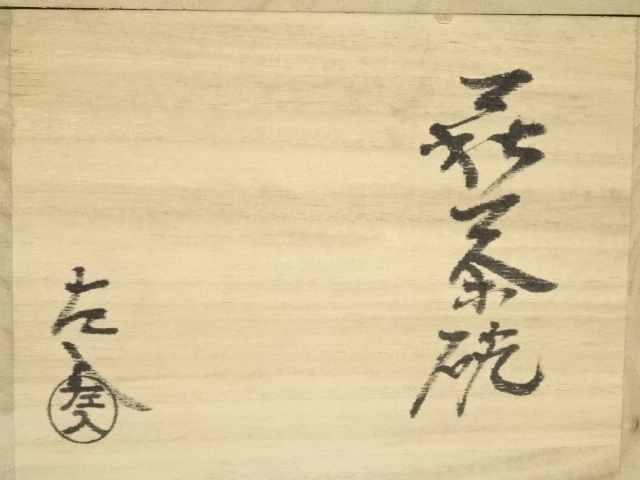 萩茶碗
左入
左入